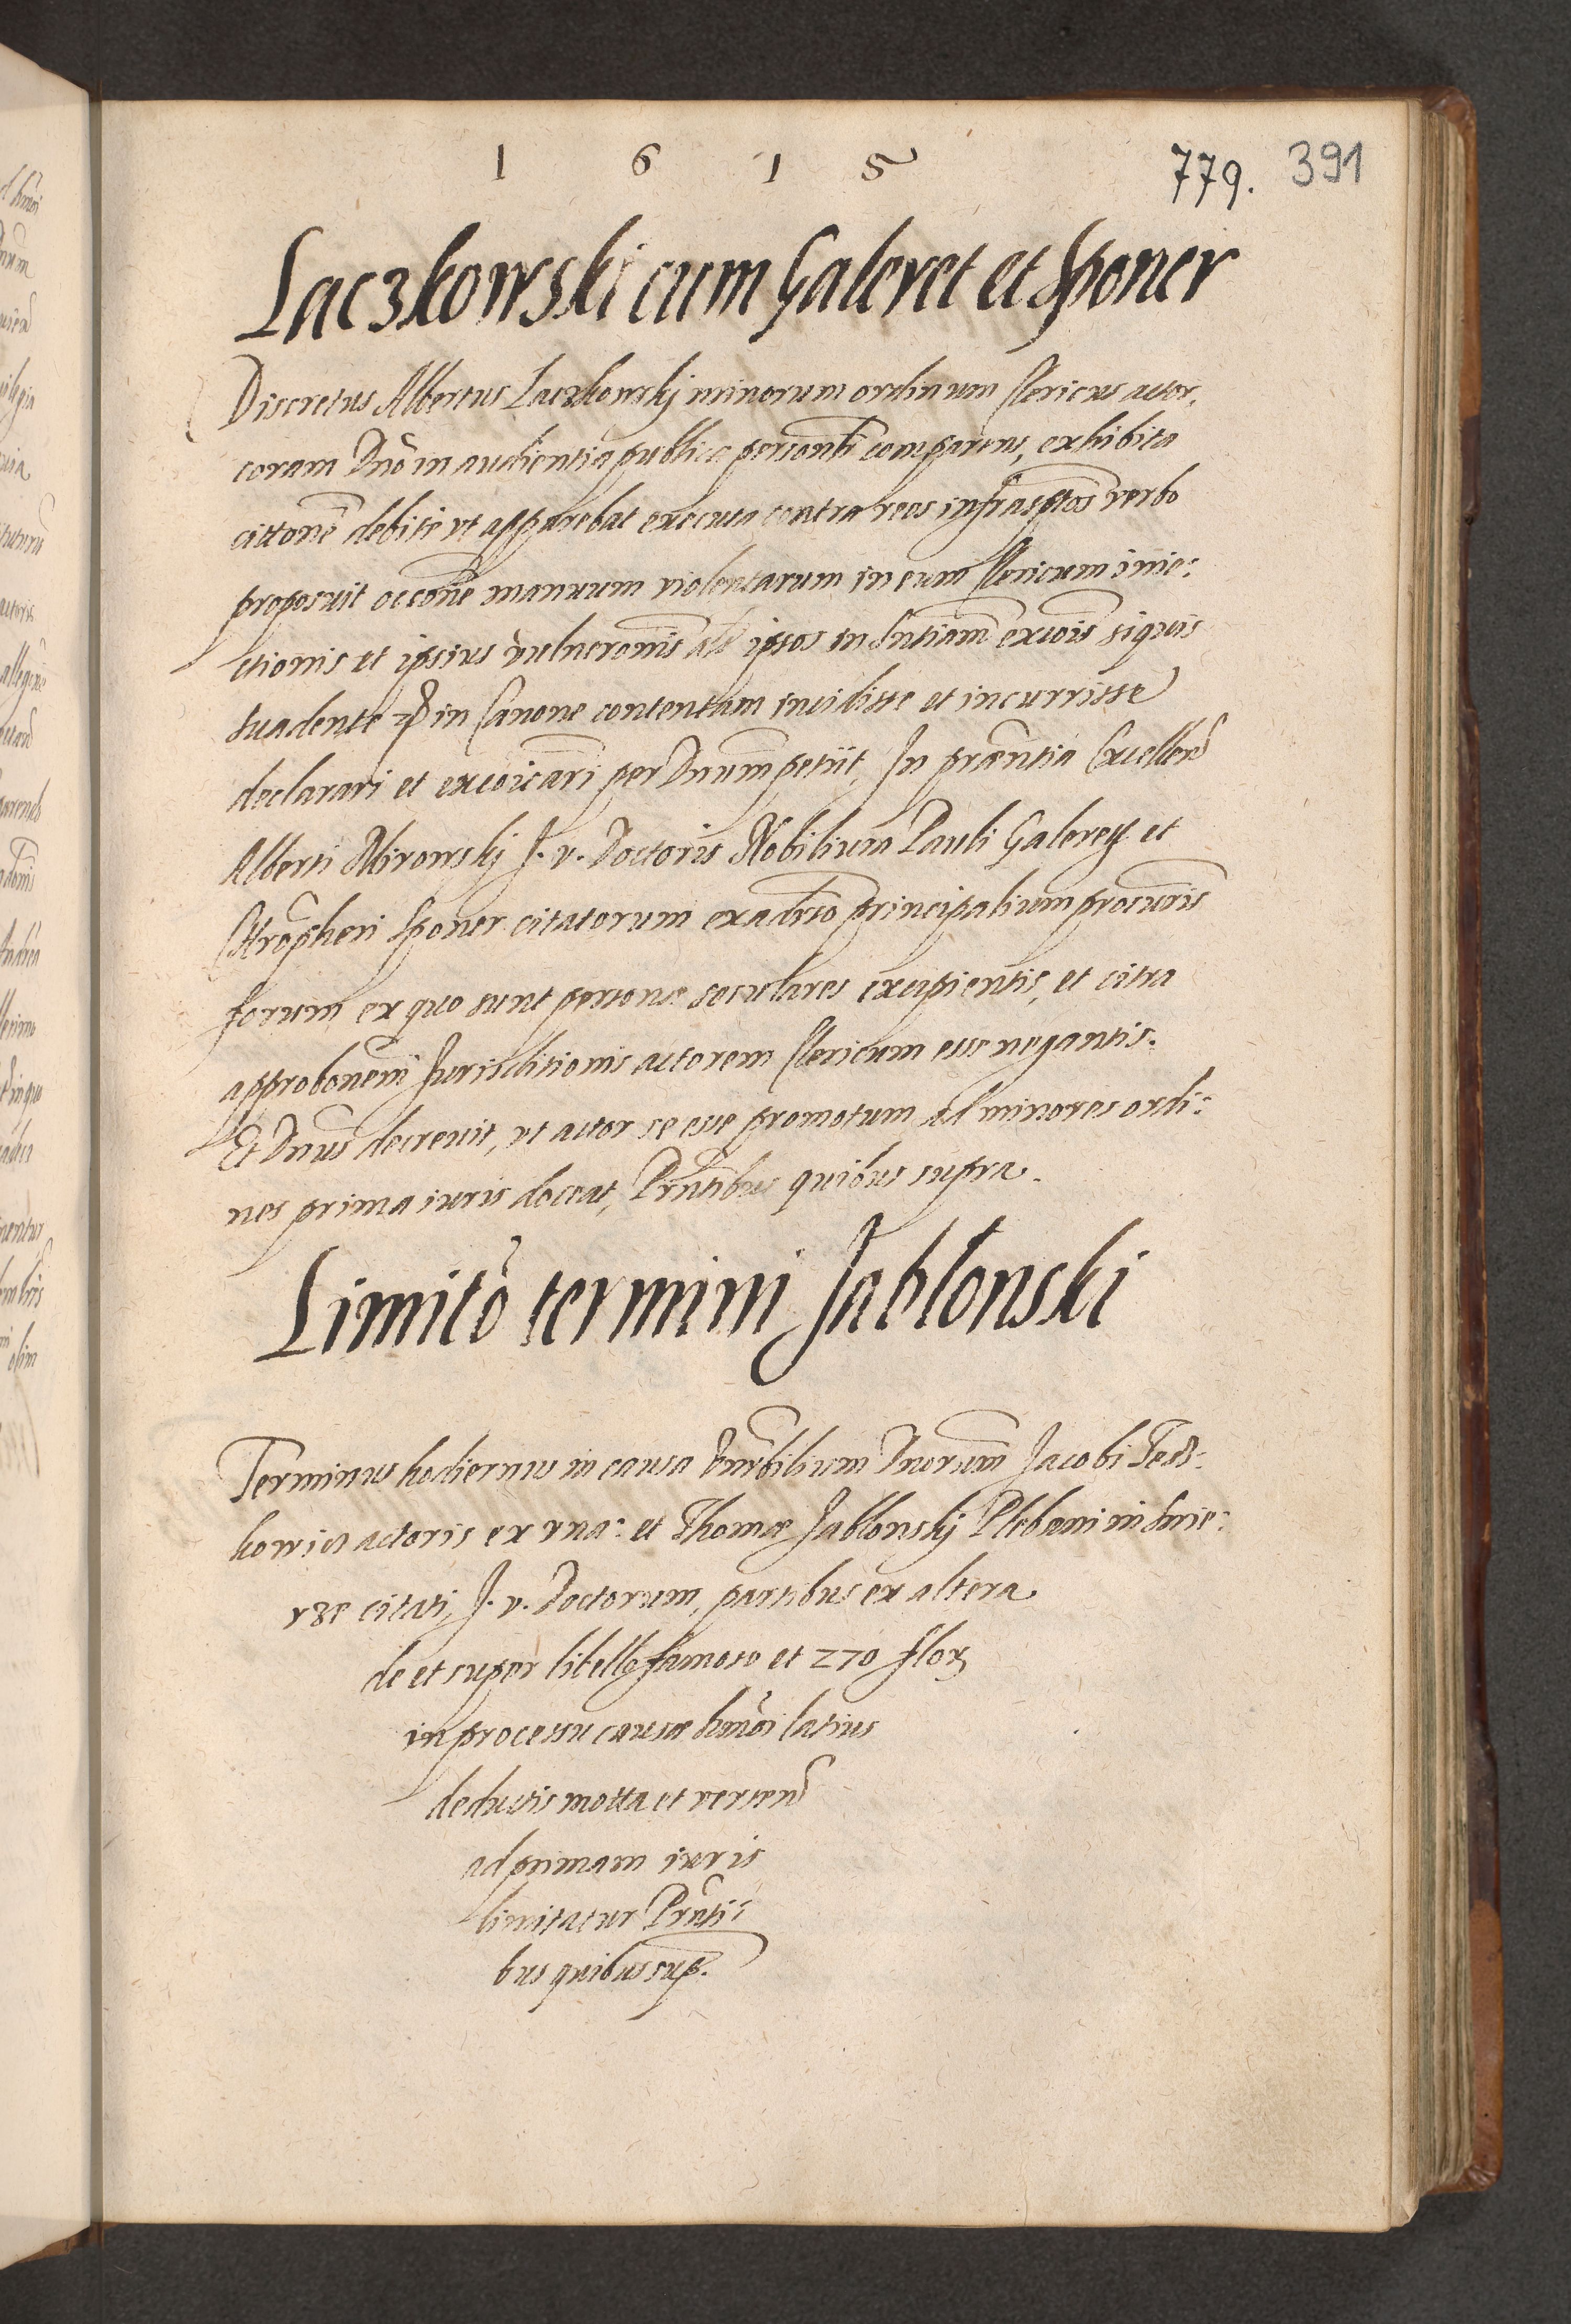 1 6 1 5
779. 391
Laczkowski cum Galeret et Sponer
Discretus Albertus Laczkowskj minorum ordinum Clericus actor,
coram Dno in audientia publica personlr comparens, exhibita
cittone debite vt apparebat executa contra reos infrasptos verbo
proposuit occone manuum violentarum in eum Clericum inie:
ctionis et ipsius vulneronis ipsos in sntiam excois siquis
suadente in Canone contentam incidisse et incurrisse
declarari et excoicari per Dnum petiit, In prasentia Excellen
Alberti Mirowskj J. v. Doctoris Nobilium Pauli Galeret et
Chrophori Sponer citatorum ex adverso principalium procuris
forum ex quo sunt personæ seculares excipientis, et citra
approbonem Jurisditionis actorem Clericum esse negantis.
Et Dnus decreuit, vt actor se esse promotum ad minores ordi:
nes prima iuris doceat, Prntibus quibus supra.
Limito termini Jablonski
Terminus hodiernus in causa Vnrbilium Dnorum Jacobi
kowicz actoris ex vna: et Thomæ Jablonskj Plebani in
citati, J. v. Doctorum, partibus ex altera
de et super libello famoso et 270 flor
in processu causæ hmoi latius
deductis motta et verten
ad primam iuris
limitatur Prnti:
bus quibus sup.